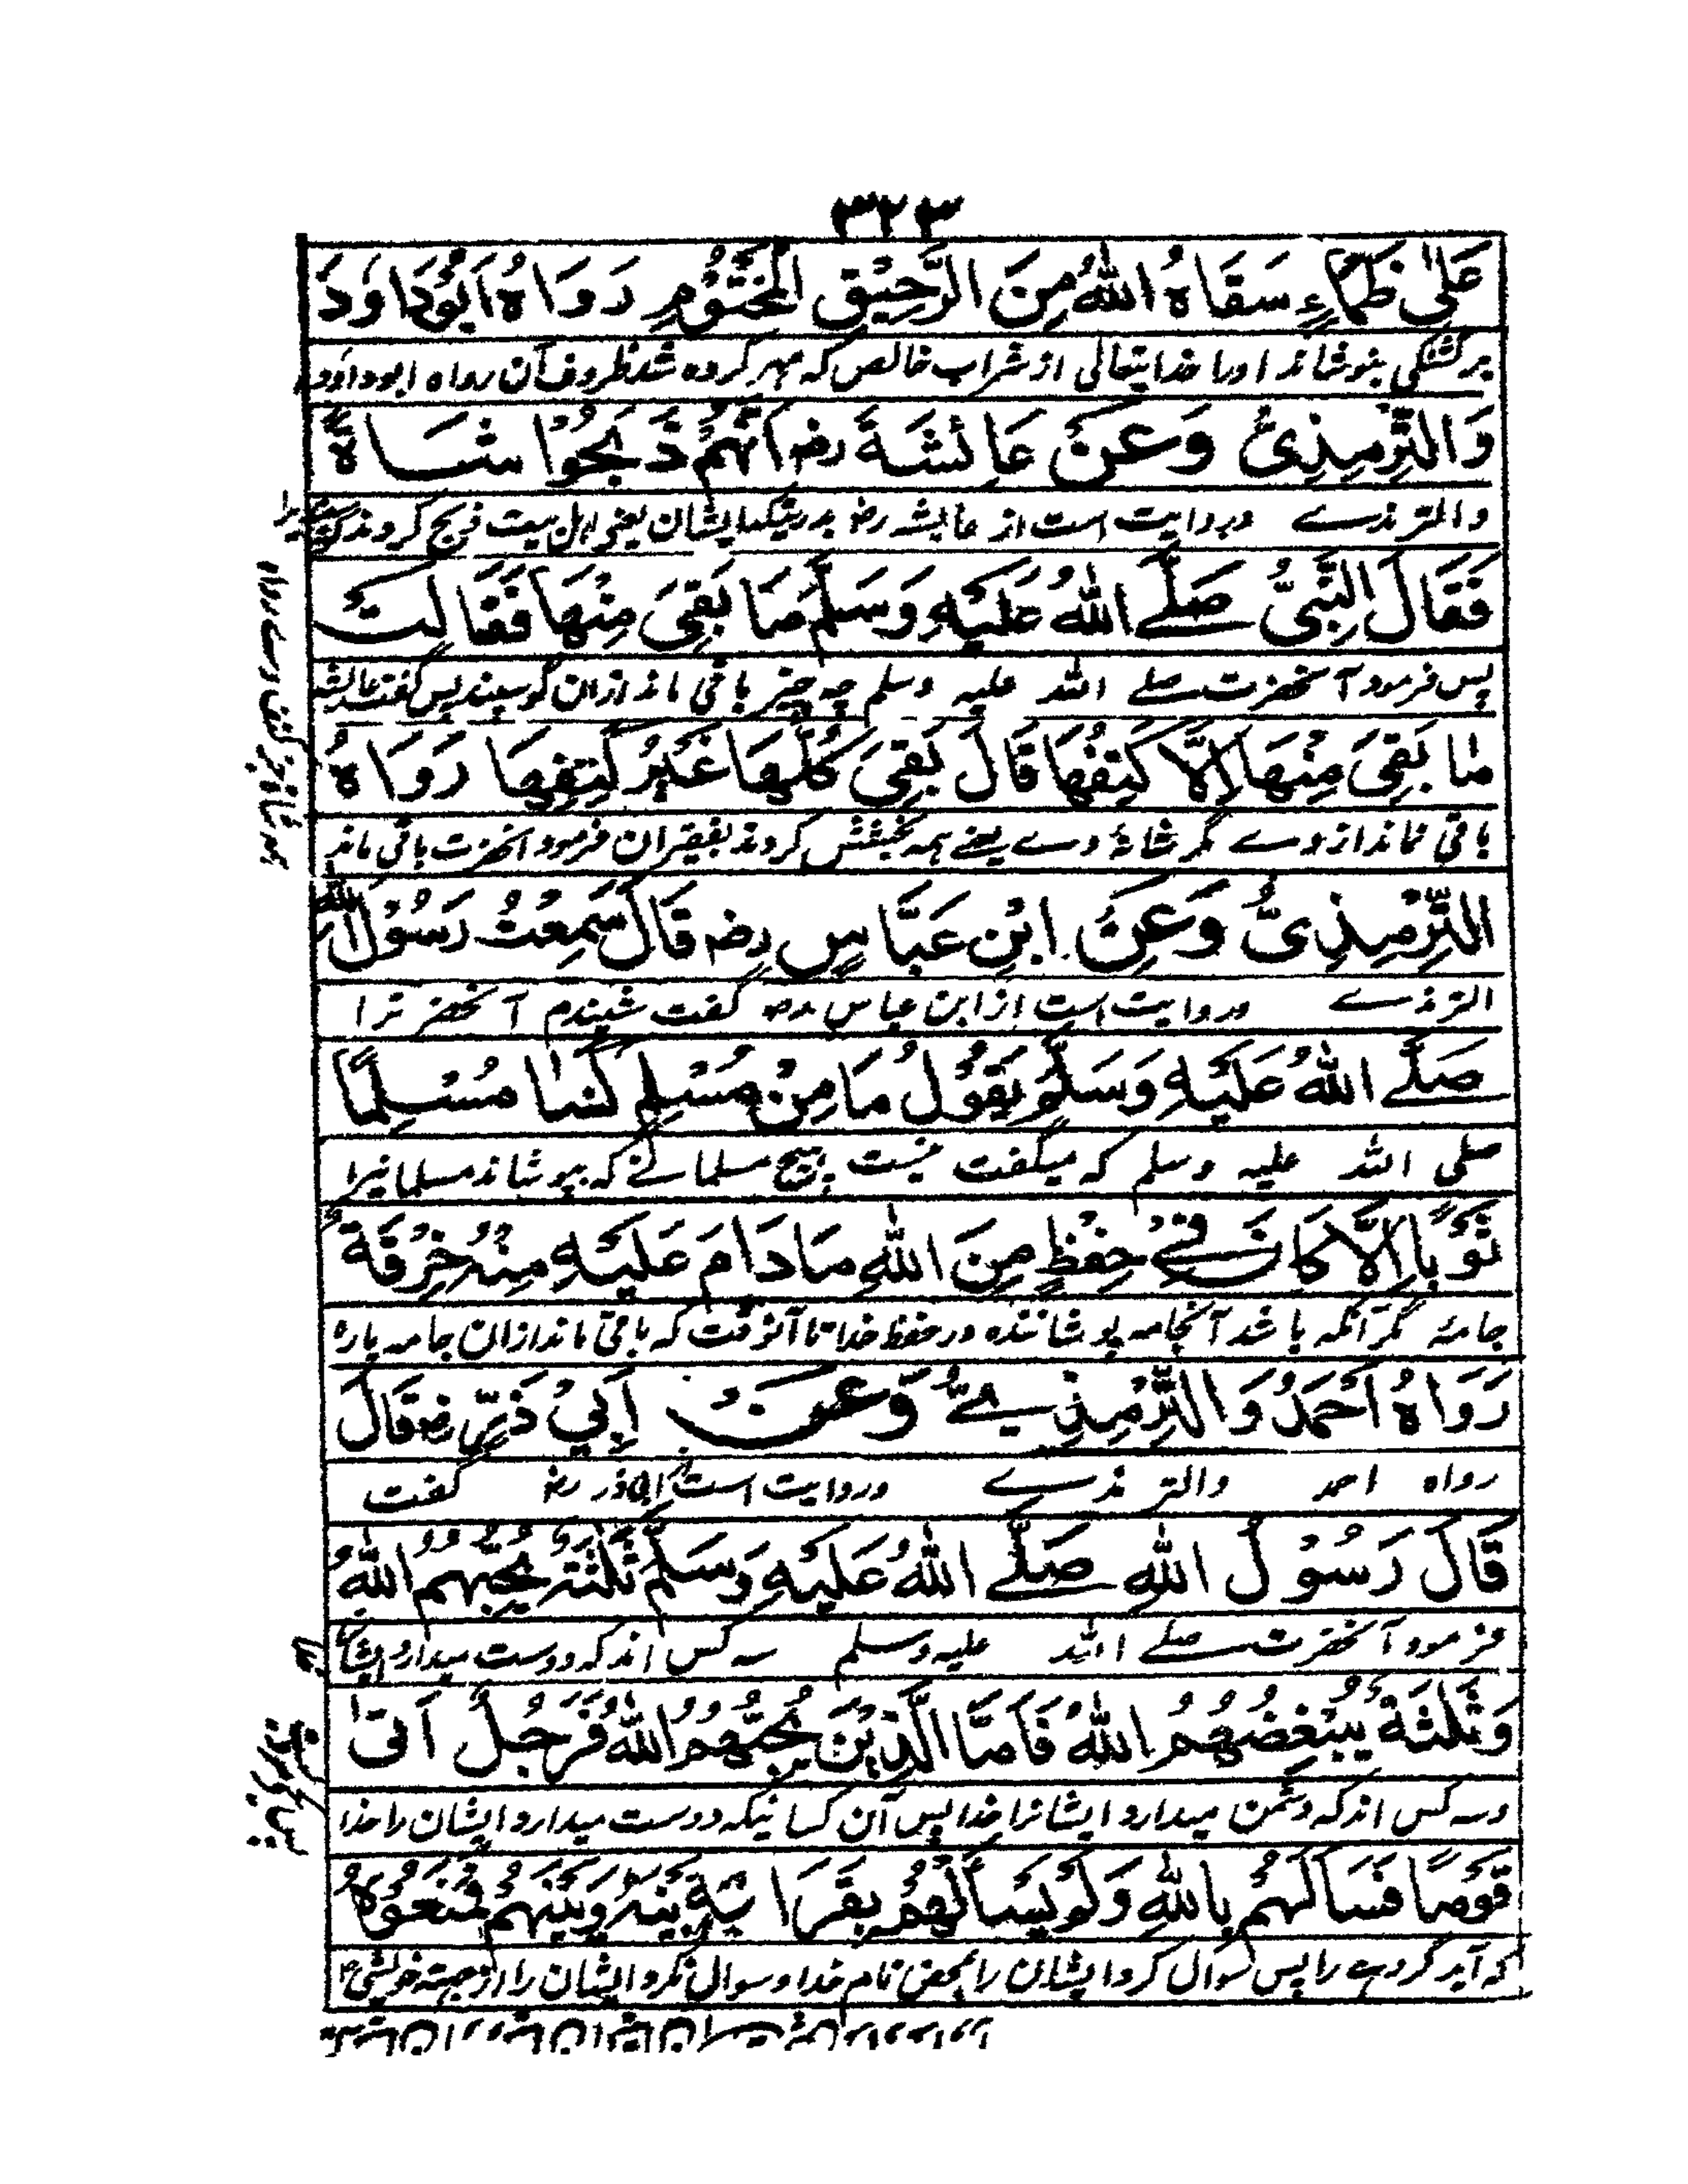 ٣٢٣
عَلٰى ظَمَاءٍ سَقَاهُ اللهُ مِنَ الرَّحِيْقِ الْمَخْتُوْمِ رَوَاهُ اَبُوْدَاوَدَ
بر تشنگی بنوشاند اورا خدایتعالی از شراب خالص که مهر کرده شد ظروف آن رواه ابوداود
وَالتِّرْمِذِىُّ وَعَنْ عَائشَةَ رضه اَنَّهُمْ ذَبَحُوْا شَاةً
والترمذے وروایت است از عایشه رضه بدرستیکه ایشان یعنی اهل بیت ذبح کردند
فَقَالَ النَّبِىُّ صَلَّے اللهُ عَلَيْهِ وَسَلَّمَ مَا بَقِىَ مِنْهَا فَقَالَتْ
پس فرمود آنحضرت صلے الله علیه وسلم چه چیز باقی ماند ازان گوسپند پس گفت عایشه
مٰا بَقِىَ مِنْهَا اِلَّا كَتِفُهَا قَالَ بَقِىَ كُلُّهَا غَيْرُ كَتِفِهَا رَوَاهُ
باقی نماند از وے مگر شانهٔ وے یعنے همه بخشش کردند بفقیران فرمود آنحضرت باقی ماند
التِّرْمِذِىُّ وَعَنْ ابْنِ عَبَّاسٍ رضه قَالَ سَمِعْتُ رَسُوْلَ اللهِ
الترمذے وروایت است از ابن عباس رضه گفت شنیدم آنحضرترا
صَلَّے اللهُ عَلَيْهِ وَسَلَّمَ يَقُوْلُ مَا مِنْ مُسْلِمٍ كَسٰا مُسْلِمًا
صلی الله علیه وسلم که میگفت نیست هیچ مسلمانے که بپوشاند مسلمانیرا
ثَوْبًا اِلَّا كَانَ فِے حِفْظٍ مِنَ اللهِ مَا دَامَ عَلَيْهِ مِنْهُ خِرْقَةٌ
جامهٔ مگر آنکه باشد آنجامه پوشاننده در حفظ خدا تا آنوقت که باقی ماند ازان جامه پارهٔ
رَوَاهُ اَحْمَدُ وَالتِّرْمِذِےُّ وَعَنْ اَبِيْ ذَرٍّ رضه قَالَ
رواه احمد والترمذے وروایت است از ابی ذر رضه گفت
قَالَ رَسُوْلُ اللهِ صَلَّے اللهُ عَلَيْهِ وَسَلَّمَ ثَلٰثَةٌ يُحِبُّهُمُ اللهُ
فرمود آنحضرت صلے الله علیه وسلم سه کس اند که دوست میدارد ایشانرا
وَثَلٰثَةٌ يُبْغِضُهُمُ اللهُ فَاَمَّا الَّذِيْنَ يُحِبُّهُمُ اللهُ فَرَجُلٌ اَتٰى
وسه کس اند که دشمن میدارد ایشانرا خدا پس آن کسانیکه دوست میدارد ایشان را خدا
قَوْمًا فَسَاَلَهُمْ بِاللهِ وَلَوْ يَسْاَلْهُمْ بِقَرَابَةٍ بَيْنَهُ وَبَيْنَهُمْ فَمَنَعُوْهُ
که آید گروهے را پس سوال کرد ایشان را بمحض نام خدا و سوال نکرد ایشان را از جهته خویشی